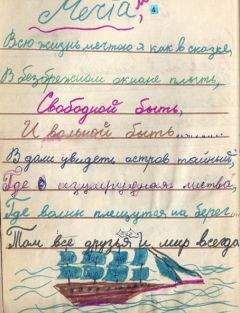 Мечта,
Всю жизнь мечтаю я как в сказке,
В безбрежном океане плыть,
Свободной быть,
И вольной быть........
В дали увидеть остров тайный,
Где изумрудная листва,
Где волны плещутся на берег...
Там все друзья и мир всегда